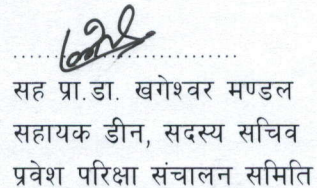 सह प्रा.डा. खगेश्वर मण्डल
सहायक डीन, सदस्य सचिव
प्रवेश परिक्षा संचालन समिति